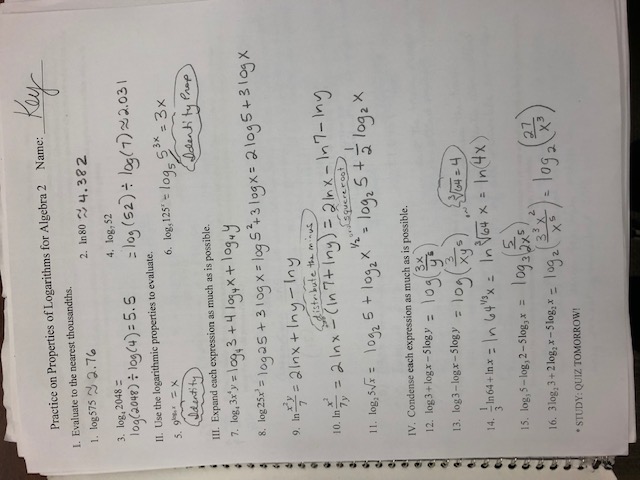 Practice on Properties of Logarithms for Algebra 2 Name: Key
I. Evaluate to the nearest thousandths.
1. log575 ≈ 2.76 2. ln80 ≈ 4.382
3. log₄ 2048 = 4. log₇ 52
log(2048) ÷ log(4) = 5.5 = log(52) ÷ log(7) ≈ 2.031
II. Use the logarithmic properties to evaluate.
5. = x 6. log₅ 125ˣ = log₅ 5³ˣ = 3x
Identity Identity Prop
III. Expand each expression as much as is possible.
7. log₄ 3x⁴y = log₄ 3 + 4 log₄ x + log₄ y
8. log 25x³ = log 25 + 3 log x = log 5² + 3 log x = 2 log 5 + 3 log x
9. ln x²y/7 = 2 ln x + ln y - ln y
distribute the minus
10. ln x²/7y = 2 ln x - (ln 7 + ln y) = 2 ln x - ln 7 - ln y
square root
11. log₂ 5√x = log₂ 5 + log₂ x^(1/2) = log₂ 5 + 1/2 log₂ x
IV. Condense each expression as much as is possible.
12. log3 + log x - 5 log y = log (3x/y⁵)
13. log3 - log x - 5 log y = log (3/xy⁵) ∛64 = 4
14. 1/3 ln 64 + ln x = ln 64^(1/3) x = ln ∛64 x = ln(4x)
15. log₃ 5 - log₃ 2 - 5 log₃ x = log₃ (5/2x⁵)
16. 3 log₂ 3 + 2 log₂ x - 5 log₂ x = log₂ (3³x²/x⁵) = log₂ (27/x³)
* STUDY: QUIZ TOMORROW!